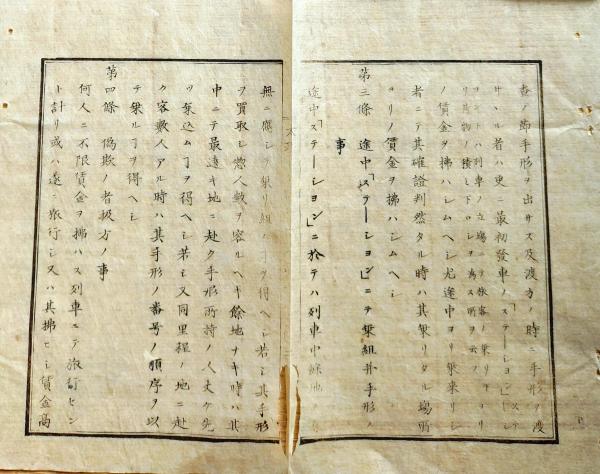 査ノ節手形ヲ出サス及渡方ノ時ニ手形ヲ渡
サヽル者ハ更ニ最初發車ノ「ステーシヨン」
ヨントハ列車ノ立塲ニテ旅客ノ乗リ
荷物ノ積ミ下ロシヲ為ス所ヲ云フ
ノ賃金ヲ拂ハシムヘシ尤途中ヨリ乗来リシ
者ニテ其確證判然タル時ハ其乗リタル塲所
ヨリノ賃金ヲ拂ハシムヘシ
第三條 途中「ステーシヨン」ニテ乗組幷手形ノ
事
途中「ステーシヨン」ニ於テハ列車中餘地
無ニ應シテ乗リ組ム丁ヲ得ヘシ若シ其手形
ヲ買取シ惣人數ヲ容ルヘキ餘地ナキ時ハ其
中ニテ最遠キ地ニ赴ク手形所持ノ人丈ケ先
ツ乗込ム丁ヲ得ヘシ若シ又同里程ノ地ニ赴
ク客數人アル時ハ其手形ノ番号ノ順序ヲ以
テ乗ル丁ヲ得ヘシ
第四條 偽欺ノ者扱方ノ事
何人ニ不限賃金ヲ拂ハス列車ニテ旅行セン
ト計リ或ハ遠ニ旅行シ又ハ其拂ヒシ賃金高